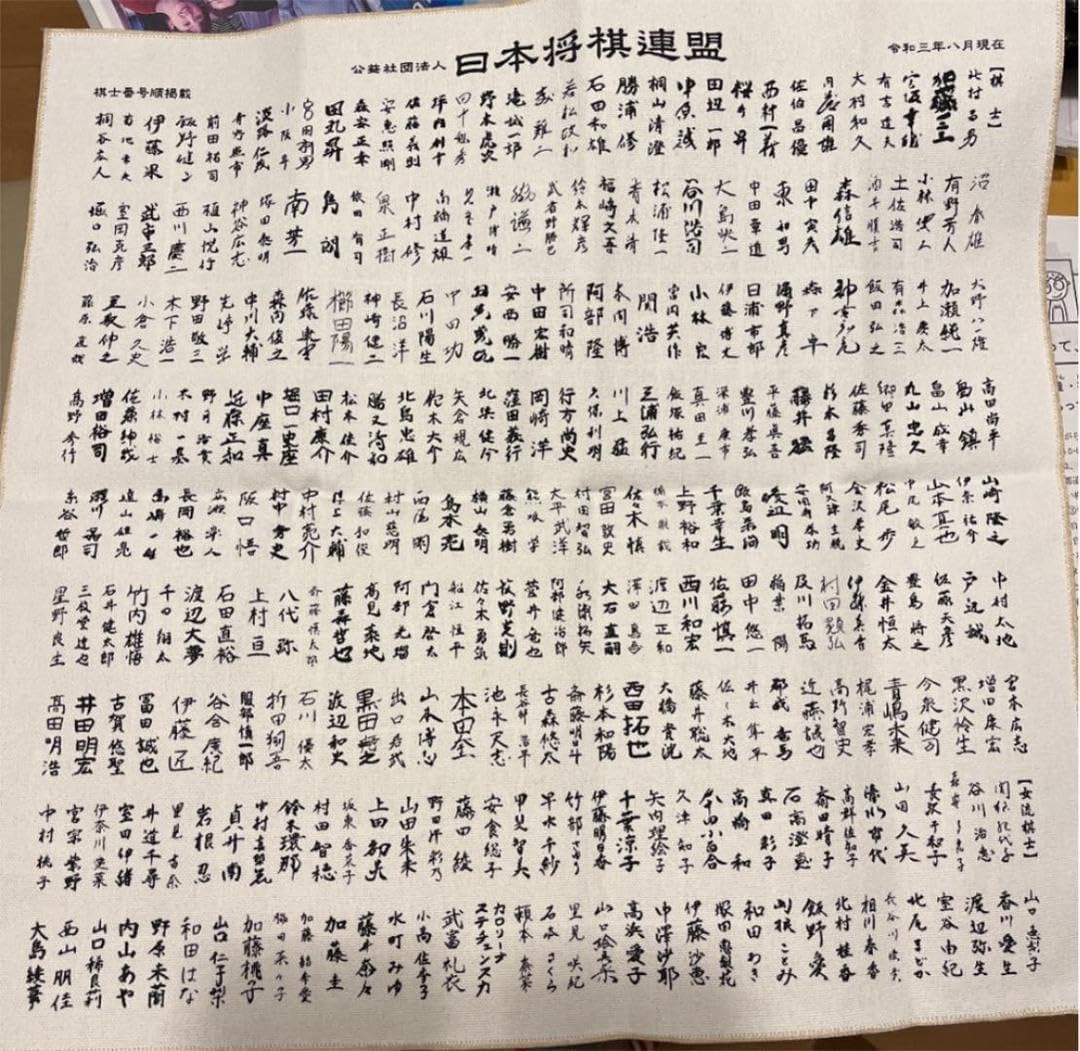 公益社団法人 日本将棋連盟
令和三年八月現在
棋士番号順掲載
【棋士】
北村昌男
加藤一二三
宮坂幸雄
有吉道夫
大村和久
内藤國雄
佐伯昌優
西村一義
桜井昇
田辺一郎
中原誠
桐山清澄
勝浦修
石田和雄
若松政和
森雞二
滝誠一郎
野本虎次
田中魁秀
坪内利幸
佐藤義則
安恵照剛
森安正幸
田丸昇
宮田利男
小阪昇
淡路仁茂
青野照市
前田祐司
飯野健二
伊藤果
菊地常夫
桐谷広人
沼春雄
有野芳人
小林健二
土佐浩司
酒井順吉
森信雄
田中寅彦
東和男
中田章道
大島映二
谷川浩司
松浦隆一
福崎文吾
鈴木輝彦
武者野勝巳
脇謙二
瀬戸博晴
児玉孝一
高橋道雄
中村修
泉正樹
依田有司
島朗
南芳一
塚田泰明
神谷広志
植山悦行
西川慶二
武市三郎
室岡克彦
堀口弘治
大野八一雄
加瀬純一
井上慶太
有森浩三
飯田弘之
神吉宏充
森下卓
浦野真彦
日浦市郎
伊藤博文
小林宏
富岡英作
関浩
本間博
阿部隆
所司和晴
中田宏樹
安西勝一
羽生善治
中田功
石川陽生
長沼洋
神崎健二
櫛田陽一
佐藤康光
森内俊之
中川大輔
先崎学
野田敬三
木下浩一
小倉久史
屋敷伸之
藤原直哉
高田尚平
畠山鎮
畠山成幸
丸山忠久
郷田真隆
佐藤秀司
杉本昌隆
藤井猛
平藤眞吾
豊川孝弘
深浦康市
真田圭一
飯塚祐紀
三浦弘行
川上猛
久保利明
行方尚史
岡崎洋
窪田義行
北浜健介
矢倉規広
鈴木大介
北島忠雄
勝又清和
松本佳介
田村康介
堀口一史座
中座真
近藤正和
野月浩貴
木村一基
小林裕士
佐藤紳哉
増田裕司
高野秀行
山崎隆之
伊奈祐介
山本真也
中尾敏之
松尾歩
金沢孝史
阿久津主税
安用寺孝功
渡辺明
飯島栄治
千葉幸生
上野裕和
橋本崇載
佐々木慎
宮田敦史
村田智弘
大平武洋
熊坂学
藤倉勇樹
横山泰明
島本亮
西尾明
村山慈明
佐藤和俊
片上大輔
中村亮介
村中秀史
阪口悟
広瀬章人
長岡裕也
高崎一生
遠山雄亮
瀬川晶司
糸谷哲郎
中村太地
戸辺誠
佐藤天彦
豊島将之
金井恒太
伊藤真吾
村田顕弘
及川拓馬
稲葉陽
田中悠一
佐藤慎一
西川和宏
渡辺正和
澤田真吾
大石直嗣
永瀬拓矢
阿部健治郎
菅井竜也
牧野光則
佐々木勇気
船江恒平
門倉啓太
阿部光瑠
高見泰地
藤森哲也
斎藤慎太郎
八代弥
上村亘
石田直裕
渡辺大夢
千田翔太
竹内雄悟
石井健太郎
三枚堂達也
星野良生
宮本広志
増田康宏
黒沢怜生
今泉健司
青嶋未来
梶浦宏孝
高野智史
近藤誠也
都成竜馬
井出隼平
佐々木大地
藤井聡太
大橋貴洸
西田拓也
杉本和陽
斎藤明日斗
古森悠太
長谷部浩平
池永天志
本田奎
山本博志
出口若武
黒田尭之
渡辺和史
石川優太
折田翔吾
服部慎一郎
谷合廣紀
伊藤匠
冨田誠也
古賀悠聖
井田明宏
高田明浩
【女流棋士】
関根紀代子
谷川治恵
森安多恵子
長沢千和子
山田久美
清水市代
高群佐知子
斎田晴子
石高澄恵
真田彩子
高橋和
本田小百合
久津知子
矢内理絵子
千葉涼子
伊藤明日香
竹部さゆり
早水千紗
甲斐智美
安食総子
藤田綾
野田澤彩乃
山田朱未
上田初美
坂東香菜子
村田智穂
鈴木環那
中村真梨花
貞升南
岩根忍
里見香奈
井道千尋
室田伊緒
伊奈川愛菓
宮宗紫野
中村桃子
山口恵梨子
香川愛生
渡辺弥生
室谷由紀
北尾まどか
長谷川優貴
相川春香
北村桂香
飯野愛
山根ことみ
和田あき
塚田恵梨花
伊藤沙恵
中澤沙耶
高浜愛子
山口絵美菜
里見咲紀
石本さくら
頼本奈菜
カロリーナ
ステチェンスカ
武富礼衣
小高佐季子
水町みゆ
藤井奈々
加藤圭
加藤結李愛
脇田菜々子
加藤桃子
山口仁子梨
和田はな
野原未蘭
内山あや
山口稀良莉
西山朋佳
大島綾華